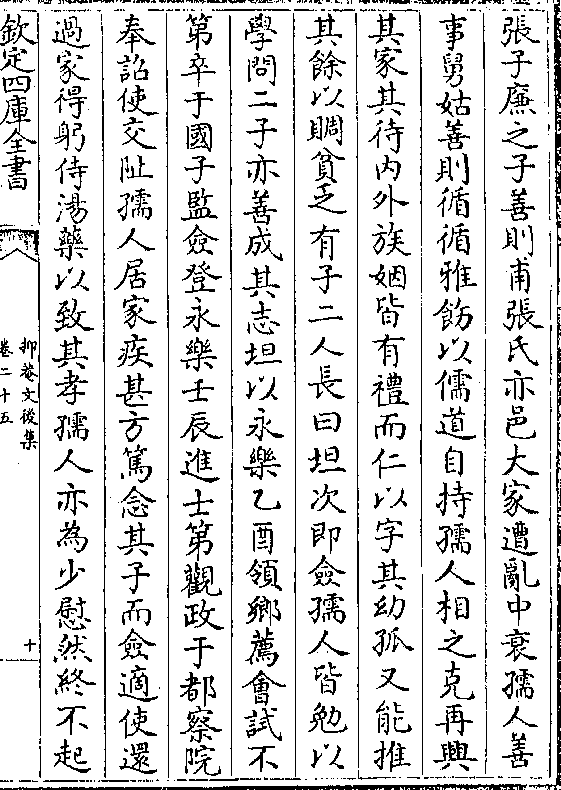 張子廉之子善則甫張氏亦邑大家遭亂中衰孺人善
事舅姑善則循循雅飭以儒道自持孺人相之克再興
其家其待内外族姻皆有禮而仁以字其幼孤又能推
其餘以賙貧乏有子二人長曰坦次即僉孺人皆勉以
學問二子亦善成其志坦以永樂乙酉領鄉薦會試不
第卒于國子監僉登永樂壬辰進士第觀政于都察院
奉詔使交阯孺人居家疾甚方篤念其子而僉適使還
過家得躬侍湯藥以致其孝孺人亦為少慰然終不起
欽定四庫全書
抑菴文後集
卷二十五
十